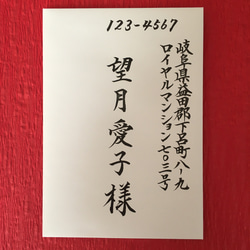 123-4567
岐阜県益田郡下呂町八ー九
ロイヤルマンション七〇三号
望月愛子様